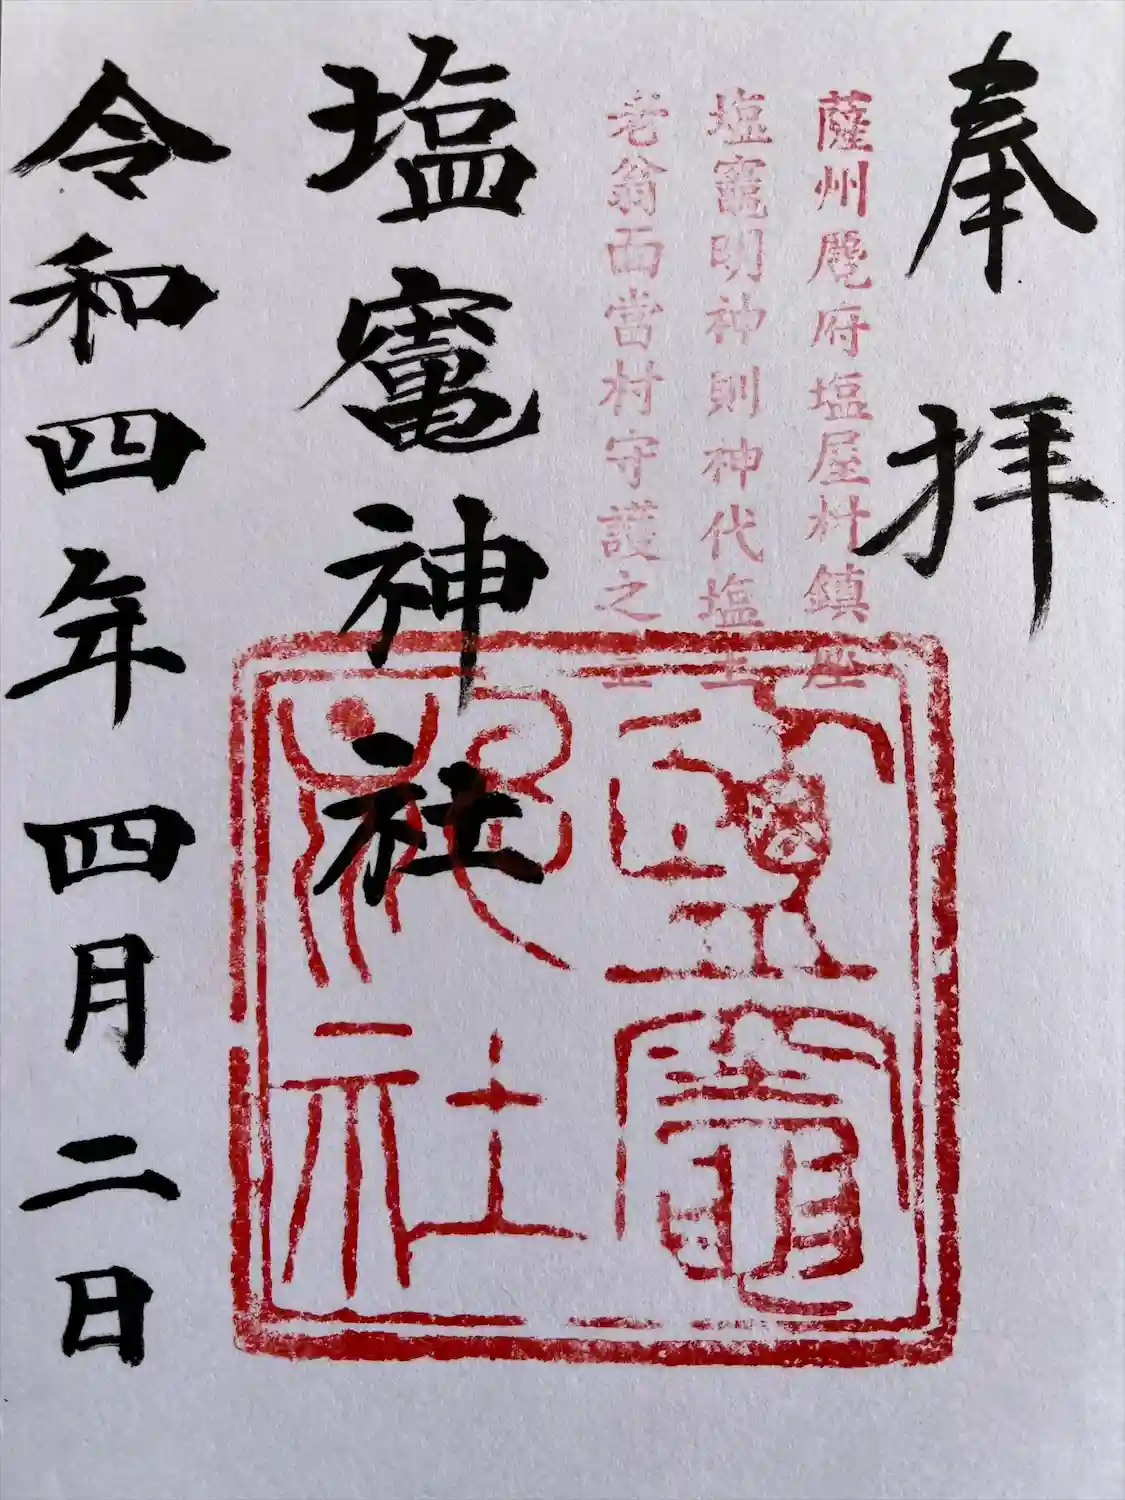 奉拝
薩州麑府塩屋村鎮座
塩竈明神則神代塩土
老翁而當村守護之
塩竈神社
令和四年四月二日
鹽竈
神社